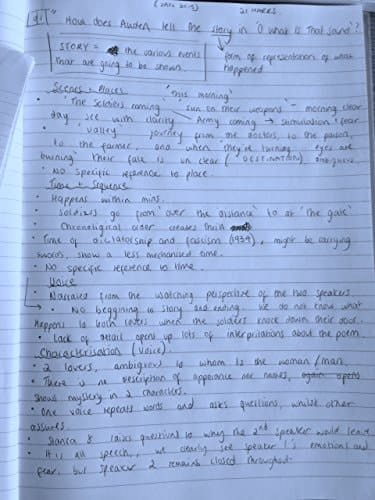 21 MARKS
Q1 " How does Auden tell the story in 'O what is That sound'?
STORY = the various events
that are going to be shown.
form of representation of what
happened
Scenes + Places
'This morning'
• 'The Soldiers coming' 'Sun on their weapons' - morning clear
day, see with clarity. Army coming → stimulation, fear
• 'valley' journey from the doctors, to the parson,
to the farmer, and when 'they're turning' eyes are
burning' Their fate is un clear (DESTINATION)
• No specific reference to place.
Time + Sequence
• Happens within mins.
• Soldiers go from 'over the distance' to at 'the gate'
• Chronological order creates
• Time of dictatorship and fascism (1934), might be carrying
swords, show a less mechanised time.
• No specific reference to time.
Voice
• Narrated from the watching perspective of the two speakers
• No beggining to story and ending. We do not know what
happens to both lovers when the soldiers knock down their door.
• lack of detail opens up lots of interpritations about the poem
Characterisation (Voice).
• 2 lovers, ambiguous to whom is the woman/man.
• There is no description of apperance nor names,
shows mystery in 2 characters.
• One voice repeats words and asks questions, whilst other
assures.
• Stanza 8 raises questions to why the 2nd speaker would leave
• It is all speech, we clearly see speaker 1's emotions and
fear, but speaker 2 remains closed throughout.